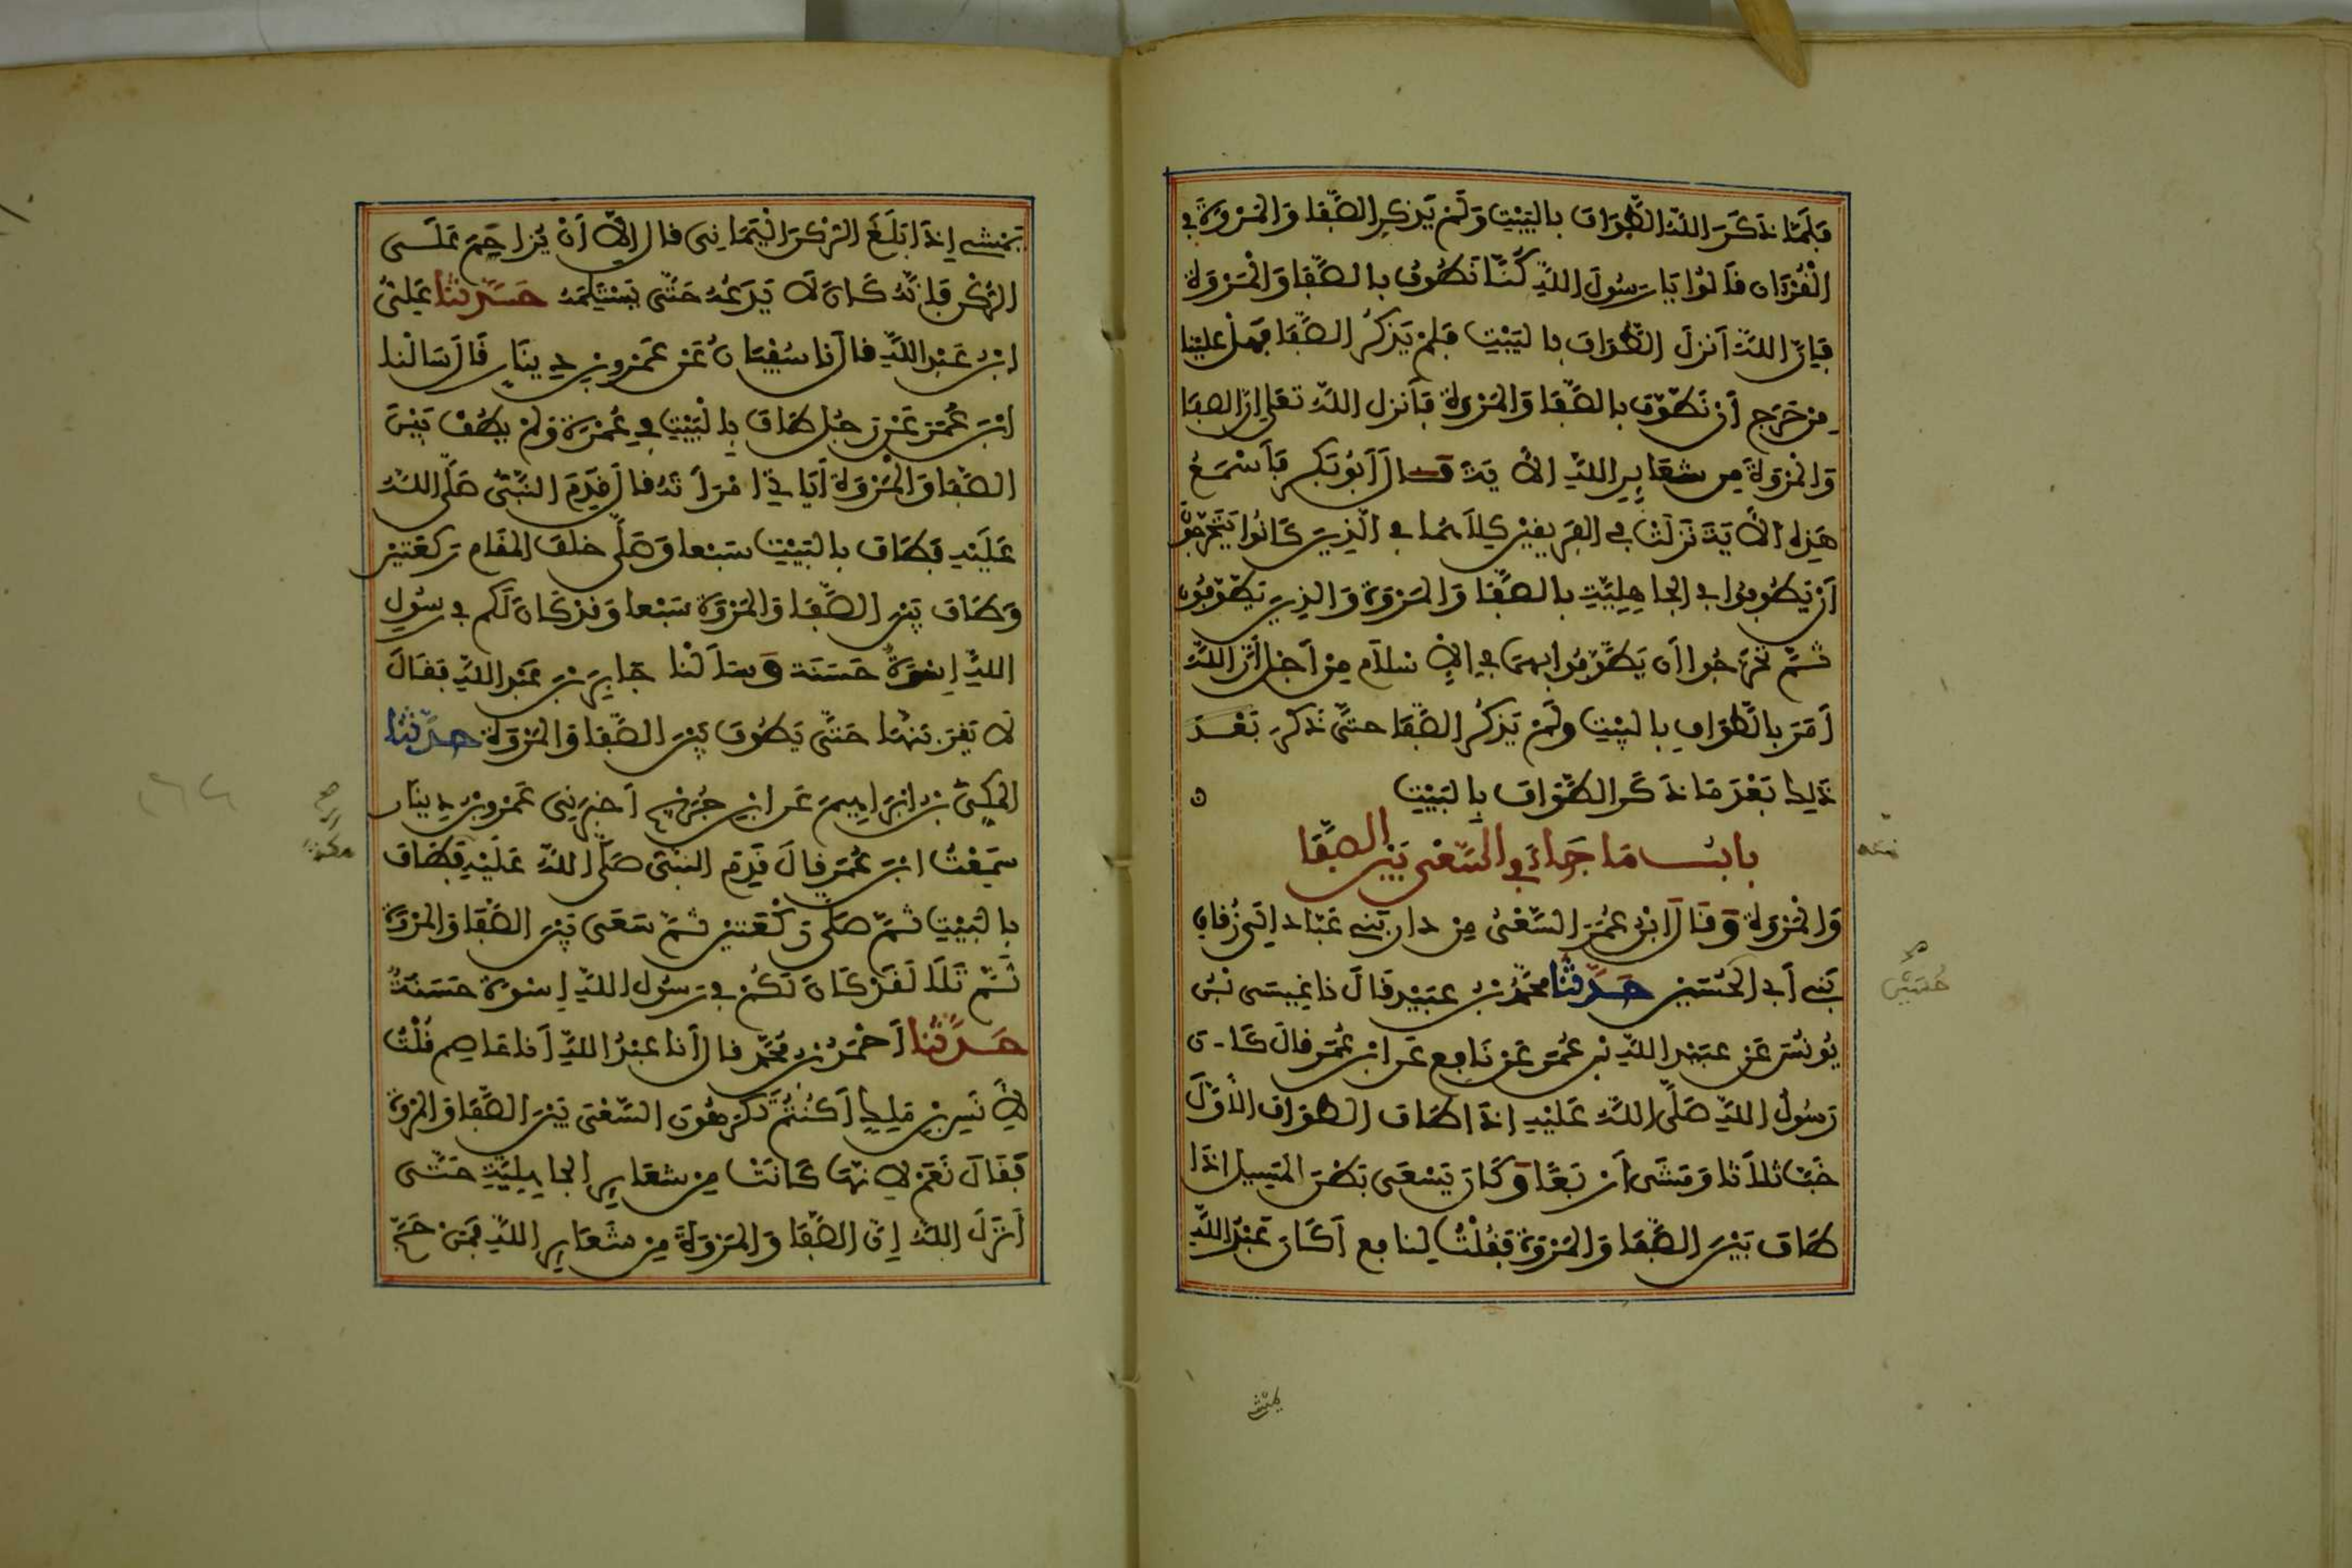 فَلَمَّا ذَكَرَ اللَّهُ الطَّوَافَ بِالبَيْتِ وَلَمْ يَذكرِ الصَّفَا وَالمَرْوَةَ فِي
الْقُرْءَانِ قَالُوا يَا رَسُولَ اللَّهِ كُنَّا نَطُوفُ بِالصَّفَا وَالْمَرْوَةِ
فَإِنَّ اللَّهَ أَنزَلَ الطَّوَافَ بِالبَيْتِ فَلَمْ يَذْكُرِ الصَّفَا فَهَلْ علينا
مِن حَرَجٍ أَن نَطَّوَّفَ بِالصَّفَا وَالمَرْوَةِ فَأَنزل اللَّهُ تعلى إن الصفا
وَالمَرْوَةَ مِن شعَايِرِ اللَّهِ الأيَةَ قَالَ أَبُو بَكرٍ فَأَسْمَعُ
هَذِهِ الأَيَةَ نَزَلَتْ فِي الفَرِيقَيْنِ كِلَاهُمَا فِي الَّذِينَ كَانُوا يَتَحَرَّجُونَ
أَن يَطُوفُوا فِي الجَاهِلِيَّةِ بِالصَّفَا وَالمَرْوَةِ وَالَّذِينَ يَطَّوَّفُونَ
ثُمَّ تَحَرَّجُوا أَن يَطَّوَّفُوا بِهِمَا فِي الإِسْلَامِ مِنْ أَجْلِ أَنَّ اللَّهَ
أَمَرَ بِالطَّوَافِ بِالبَيْتِ وَلَمْ يَذْكُرِ الصَّفَا حَتَّى ذَكَرَ بَعْدَ
ذَلِكَ بَعْدَ مَا ذَكَرَ الطَّوَافَ بِالبَيْتِ
بَابُ مَا جَاءَ فِي السَّعْيِ بَيْنَ الصَّفَا
وَالْمَرْوَةِ وَقَالَ ابْنُ عُمَرَ السَّعْيُ مِنْ دار بَنِي عَبَّادٍ إِلَى زُقَاقِ
بَنِي أَبِي الحُسَيْنِ حَدَّثَنَا مُحَمَّدُ بْنُ عبَيْدٍ قَالَ نا عِيسَى بْنُ
يُونُسَ عَنْ عبَيْدِ اللَّهِ بْنِ عُمَرَ عَنْ نَافِعٍ عَنِ ابْنِ عُمَرَ قَالَ كَانَ
رَسُولُ اللَّهِ صَلَّى اللَّهُ عَلَيْهِ إِذَا طَافَ الطَّوَافَ الأَوَّلَ
خَبَّ ثَلَاثًا وَمَشَى أَرْبَعًا وَكَانَ يَسْعَى بَطْنَ المَسِيلِ إِذَا
طَافَ بَيْنَ الصَّفَا وَالمَرْوَةِ فَقُلْتُ لِنَافِعٍ أَكَانَ عَبْدُ اللَّهِ
يمشي
يَمْشِي إِذَا بَلَغَ الرُّكْنَ الْيَمَانِي قَالَ لا إِلَّا أَنْ يُزَاحَمَ عَلَى
الرُّكْنِ فَإِنَّهُ كَانَ لَا يَدَعُهُ حَتَّى يَسْتَلِمَهُ حَدَّثَنَا عَلِيُّ
ابْنُ عَبْدِ اللَّهِ قَالَ نا سُفْيَانُ عَنْ عَمْرِو بْنِ دِينَارٍ قَالَ سَأَلْنَا
ابْنَ عُمَرَ عَن رَجُلٍ طَافَ بِالْبَيْتِ فِي عُمْرَةٍ وَلَمْ يَطُفْ بَيْنَ
الصَّفَا وَالْمَرْوَةِ أَيَأْتِي امْرَأَتَهُ قَالَ قَدِمَ النَّبِيُّ صَلَّى اللَّهُ
عَلَيْهِ فَطَافَ بِالبَيْتِ سَبْعًا وَصَلَّى خلْفَ المَقَامِ رَكعَتَيْنِ
وَطَافَ بَيْنَ الصَّفَا وَالمَرْوَةِ سَبْعًا وَقَدْ كَانَ لَكُمْ فِي رَسُولِ
اللَّهِ إِسْوَةٌ حَسَنَة وَسَأَلْنَا جَابِرَ بْنَ عَبْدِ اللَّهِ فَقَالَ
لَا يَقْرَبَنَّهَا حَتَّى يَطُوفَ بَيْنَ الصَّفَا وَالمَرْوَةِ حَدَّثَنَا
المَكِّيُّ بْنُ إِبْرَاهِيمَ عَنِ ابْنِ جُرَيْجٍ أَخبَرَنِي عَمْرُو بْنُ دِينَارٍ
سَمِعْتُ ابْنَ عُمَرَ قَالَ قَدِمَ النَّبِيُّ صَلَّى اللَّهُ عَلَيْهِ فَطَافَ
بِالبَيْتِ ثُمَّ صَلَّى رَكْعَتَيْنِ ثُمَّ سَعَى بَيْنَ الصَّفَا وَالمَرْوَةِ
ثُمَّ تَلَا لَقَدْ كَانَ لَكُمْ فِي رَسُولِ اللَّهِ إِسْوَةٌ حَسَنَةٌ
حَدَّثَنَا أَحْمَدُ بْنُ مُحَمَّدٍ قَالَ أَنَا عَبْدُ اللَّهِ أَنَا عَاصِم قُلْتُ
لِأَنَسِ بْنِ مَلِكٍ أَكُنْتُمْ تَكْرَهُونَ السَّعْيَ بَيْنَ الصَّفَا وَالمَرْوَةِ
فَقَالَ نَعَمْ لِأَنَّهَا كَانَتْ مِنْ شَعَايِرِ الجَاهِلِيَّةِ حَتَّى
أَنْزَلَ اللَّهُ إِنَّ الصَّفَا وَالمَرْوَةَ مِنْ شَعَايِرِ اللَّهِ فَمَنْ حَجَّ